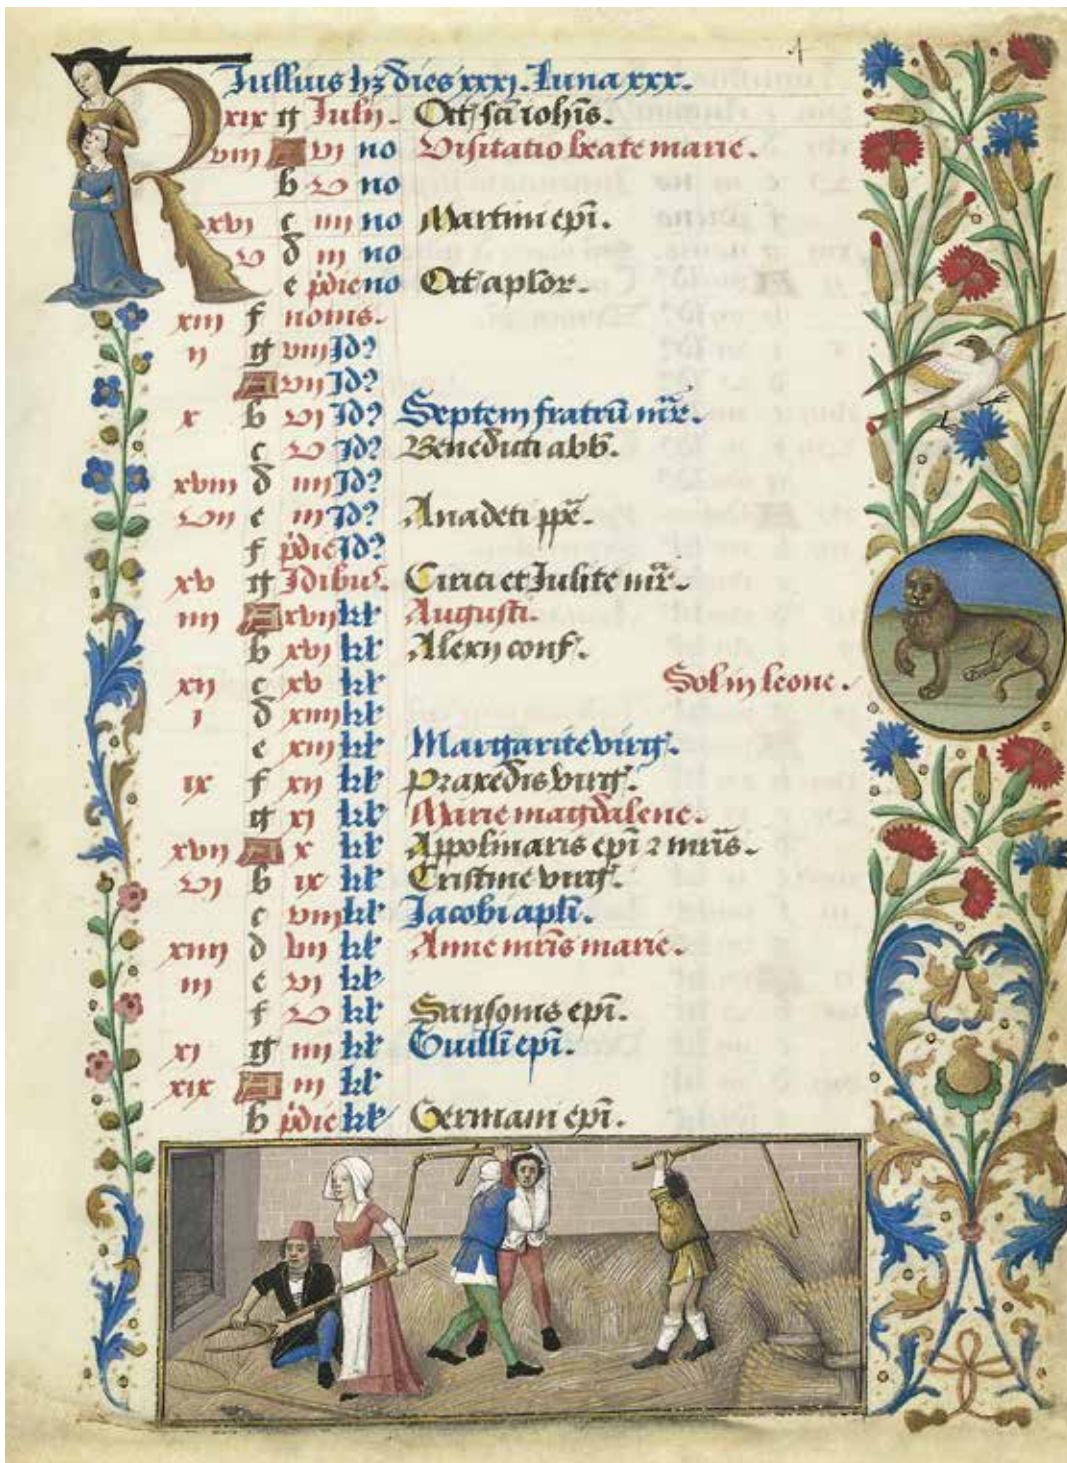 KL Iullius hz dies xxxj. Luna xxx.
xix g Iulij. Oct sci iohis.
viij A vj no Visitatio beate marie.
b v no
xvj c iiij no Martini epi.
v d iij no
e pdie no Oct aplor.
xiij f nonis.
ij g viij Id
A vij Id
x b vj Id Septem fratru mr.
c v Id Benedicti abb.
xviij d iiij Id
vij e iij Id Anacleti pp.
f pdie Id
xv g Idibus. Cirici et Iulite mr.
iiij A xvij kl Augusti.
b xvj kl Alexij conf.
xij c xv kl Sol in leone.
i d xiiij kl
e xiij kl Margarite virg.
ix f xij kl Praxedis virg.
g xj kl Marie magdalene.
xvij A x kl Appolinaris epi z mris.
vj b ix kl Cristine virg.
c viij kl Jacobi apli.
xiiij d vij kl Anne mris marie.
iij e vj kl
f v kl Sansonis epi.
xj g iiij kl Guilli epi.
xix A iij kl
b pdie kl Germani epi.